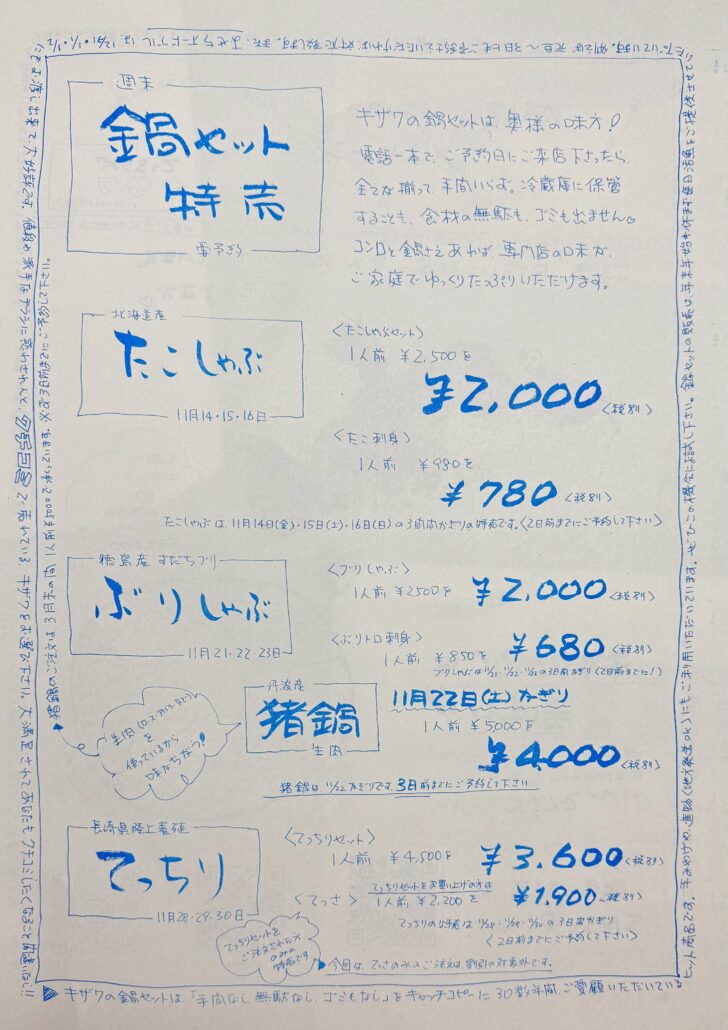 週末
鍋セット
特売
要予約
キザワの鍋セットは、奥様の味方!
電話一本で、ご予約日にご来店下さったら、
全てが揃って、手間いらず。冷蔵庫に保管
することも、食材の無駄も、ゴミも出ません。
コンロと鍋さえあれば、専門店の味が、
ご家庭でゆっくりたっぷりいただけます。
北海道産
たこしゃぶ
11月14・15・16日
<たこしゃぶセット>
1人前 ¥2,500を
¥2,000 <税別>
<たこ刺身>
1人前 ¥980を
¥780 <税別>
たこしゃぶは、11月14日(金)・15日(土)・16日(日)の3日間かぎりの特売です。<2日前までにご予約して下さい>
徳島産 すだちブリ
ぶりしゃぶ
11月21・22・23日
<ブリしゃぶ>
1人前 ¥2500を
¥2,000 <税別>
<ぶりトロ刺身>
1人前 ¥850を
¥680 <税別>
ブリしゃぶは11/21・11/22・11/23の3日間かぎり(2日前までに!)
丹波産
猪鍋
生肉
生肉(ロース・バラ・など)
を
使っているから
味がちがう!
11月22日(土)かぎり
1人前 ¥5000を
¥4,000 <税別>
猪鍋は11/22かぎりです。3日前までにご予約して下さい
長崎県陸上養殖
てっちり
11月28・29・30日
<てっちりセット>
1人前 ¥4,500を
¥3,600 <税別>
<てっさ>
てっちりセットをお買い上げの方は
1人前 ¥2,200を
¥1,900 <税別>
てっちりセットを
ご注文された方
のみの
特売です
てっちりの特売は11/28・11/29・11/30の3日間かぎり
<2日前までにご予約して下さい>
▶今回は、てっさのみのご注文は割引の対象外です。
▶猪鍋のご注文は3月末の間1人前¥5000で承っています。※必ず3日前までにご予約して下さい。
▶キザワの鍋セットは、「手間なし、無駄なし、ゴミもなし」をキャッチコピーに30数年間、ご愛顧いただいている
ヒット商品です。手みやげや、進物(地方発送OK)にもご利用いただいています。ぜひこの機会にお試し下さい。鍋セットの販売は、年末年始も休まず毎日活魚をご提供させてい
ただいています。例えば、元旦〜3日にもご予約さえしていただければ、対応致します。また、おせちオードブルは、12/31・1/1・1/2
にもお渡し出来て、大好評です。値段や派手なチラシに惑わされんと、クチコミで売れている キザワをお選び下さい。大満足されてあなたもクチコミしたくなること間違いなし!!